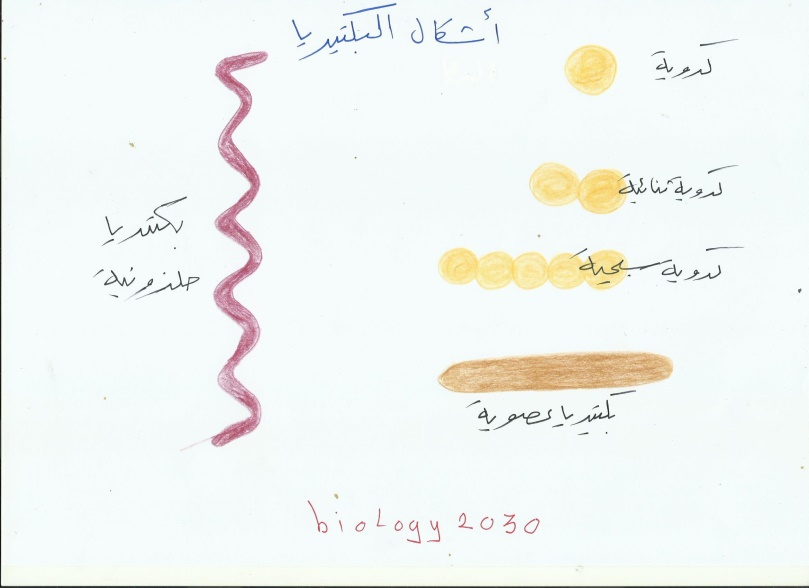 أشكال البكتيريا
كروية
كروية ثنائية
كروية سبحية
بكتيريا عصوية
بكتيريا
حلزونية
biology 2030